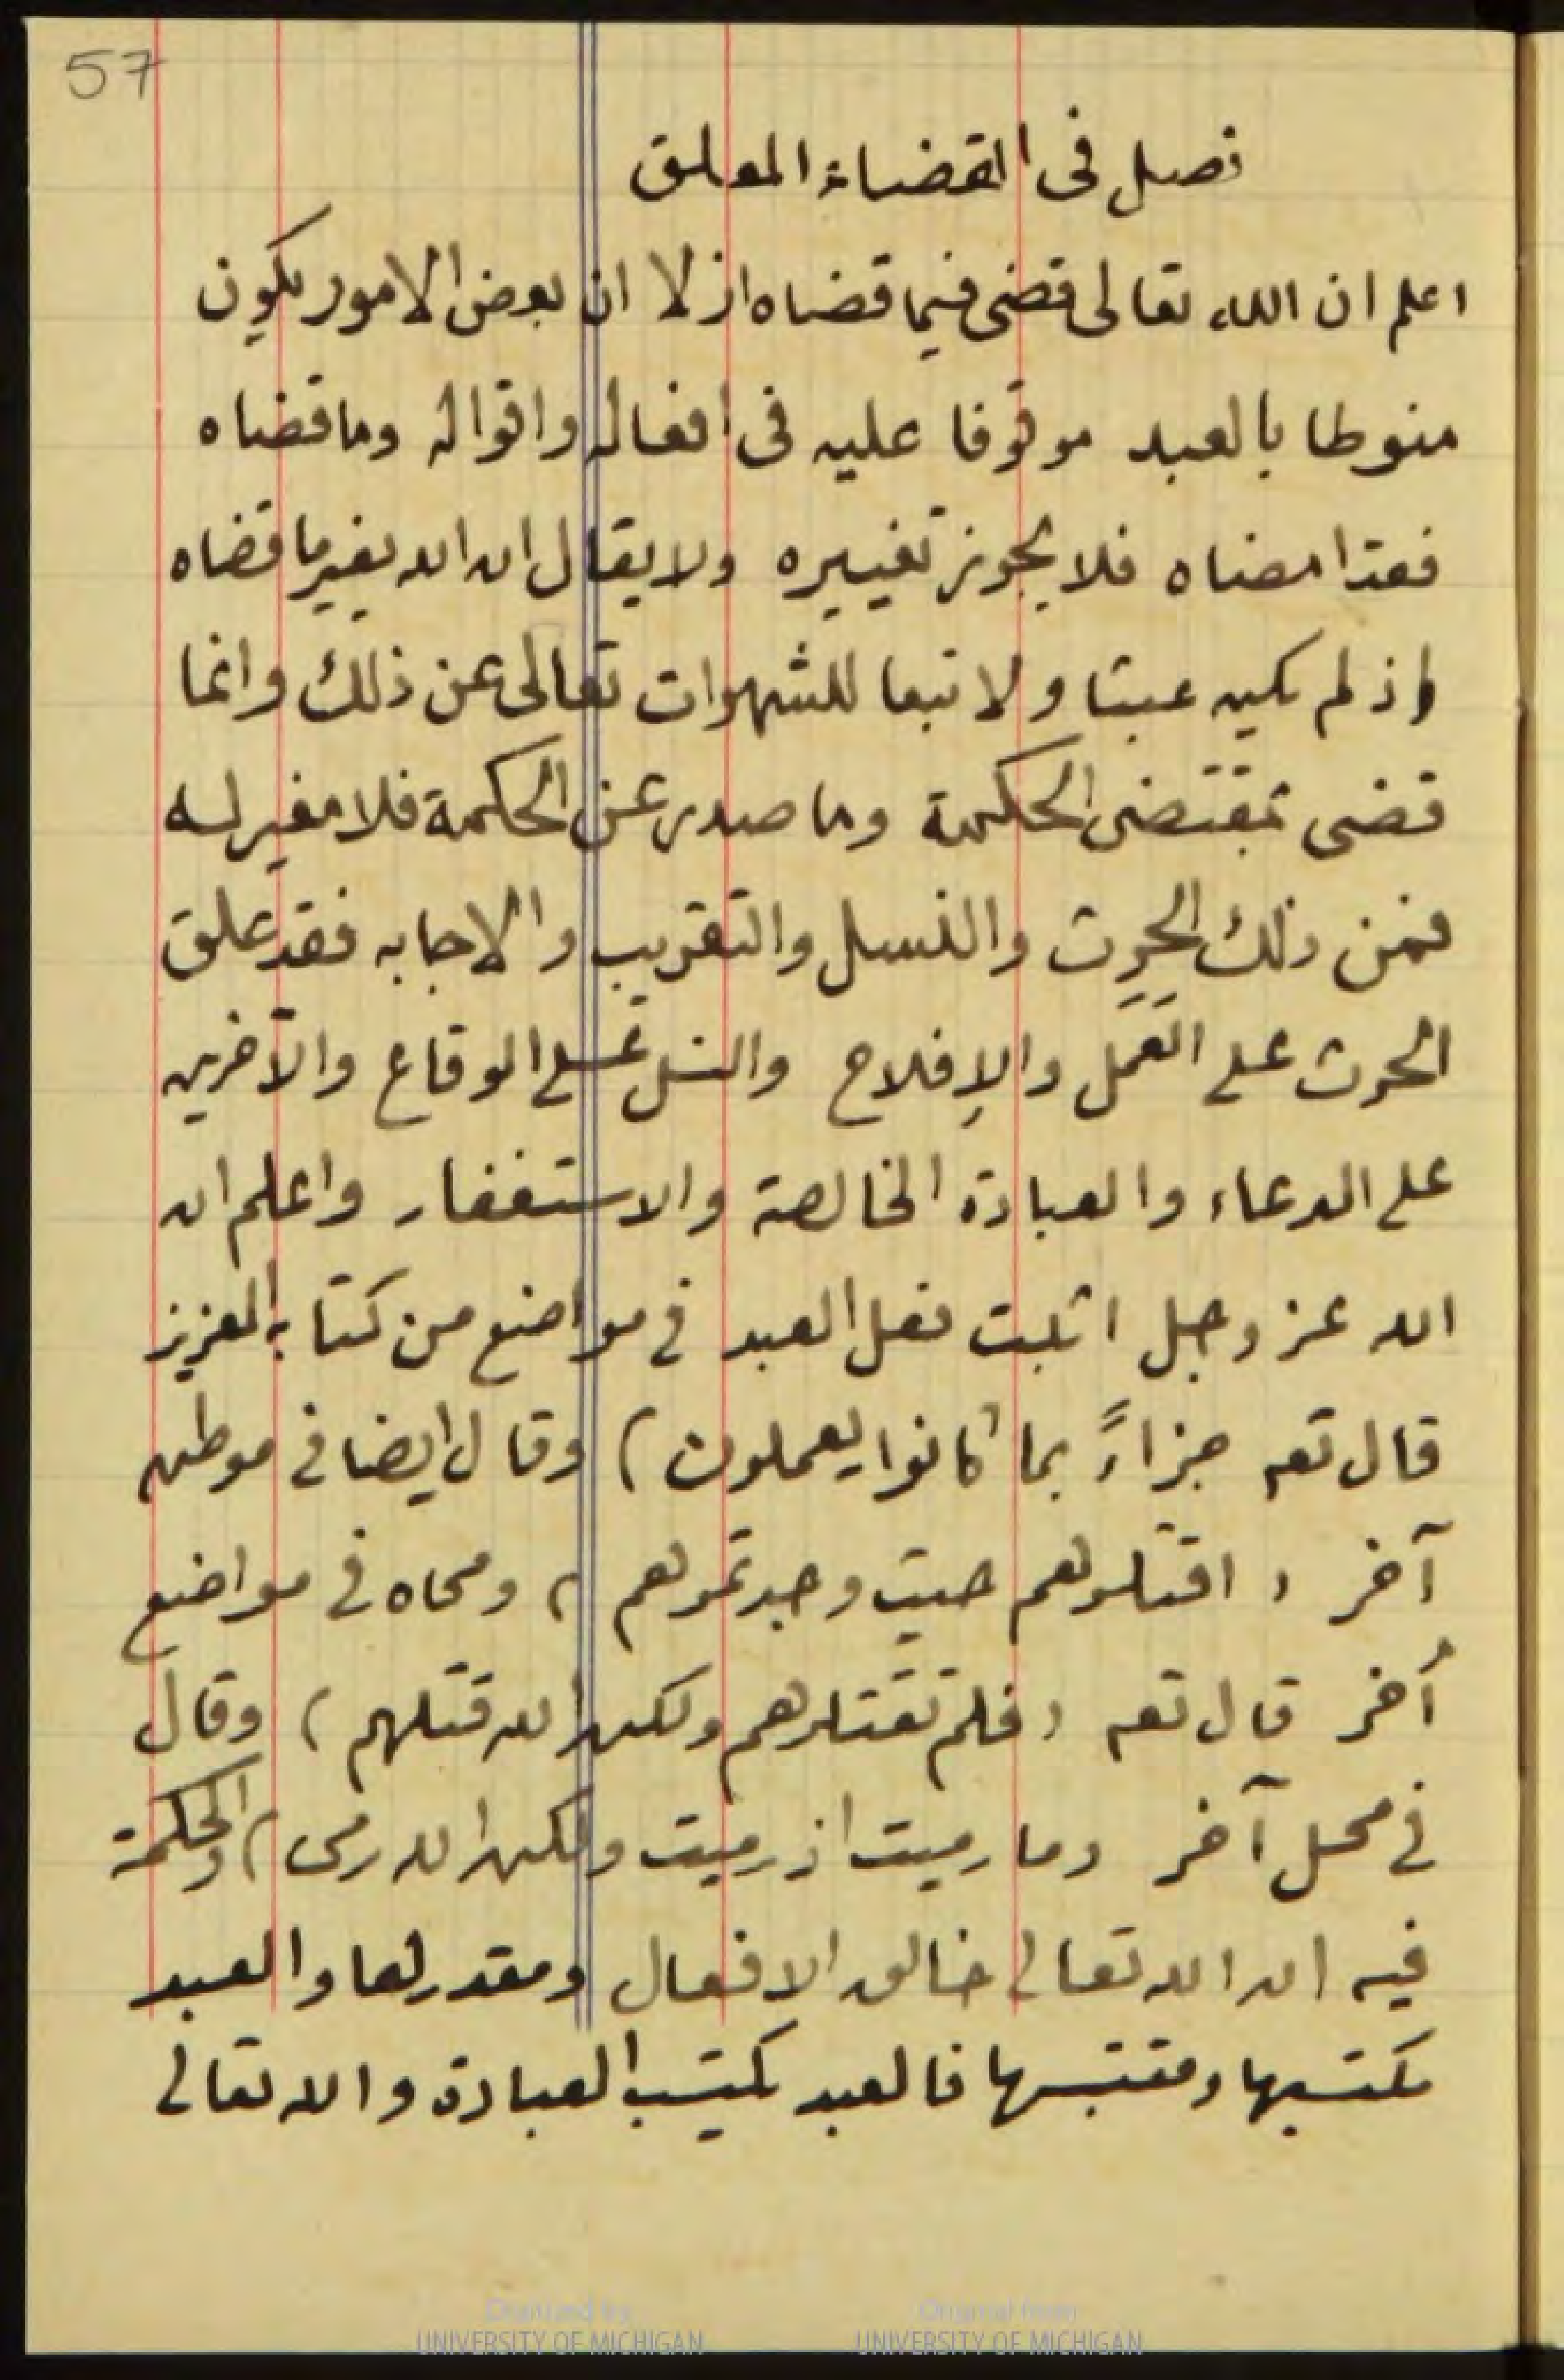 57
فصل فى القضاء المعلق
اعلم ان الله تعالى قضى فيما قضاه ازلا ان بعض الامور يكون
منوطا بالعبد موقوفا عليه فى افعاله واقواله وما قضاه
فقد امضاه فلا يجوز تغييره ولا يقال ان الله يغير ما قضاه
اذ لم يكن عبثا ولا تبعا للشهوات تعالى عن ذلك وانما
قضى بمقتضى الحكمة وما صدر عن الحكمة فلا مغير له
فمن ذلك الحرث والنسل والتقريب والاجابه فقد علق
الحرث على العمل والإفلاح والنسل على الوقاع والآخرين
على الدعاء والعبادة الخالصة والاستغفار واعلم ان
الله عز وجل اثبت فعل العبد في مواضع من كتابه العزيز
قال تعه جزاءً بما كانوا يعملون) وقال ايضا في موطن
آخر ( اقتلوهم حيث وجدتموهم ) ومحاه في مواضع
أخر قال تعه (فلم تقتلوهم ولكن الله قتلهم) وقال
في محل آخر وما رميت اذ رميت ولكن الله رمى) والحكمة
فيه ان الله تعالى خالق الافعال ومقدرها والعبد
مكتسبها ومقتبسها فالعبد يكتسب العبادة والله تعالى
Digitized by
UNIVERSITY OF MICHIGAN
Original from
UNIVERSITY OF MICHIGAN